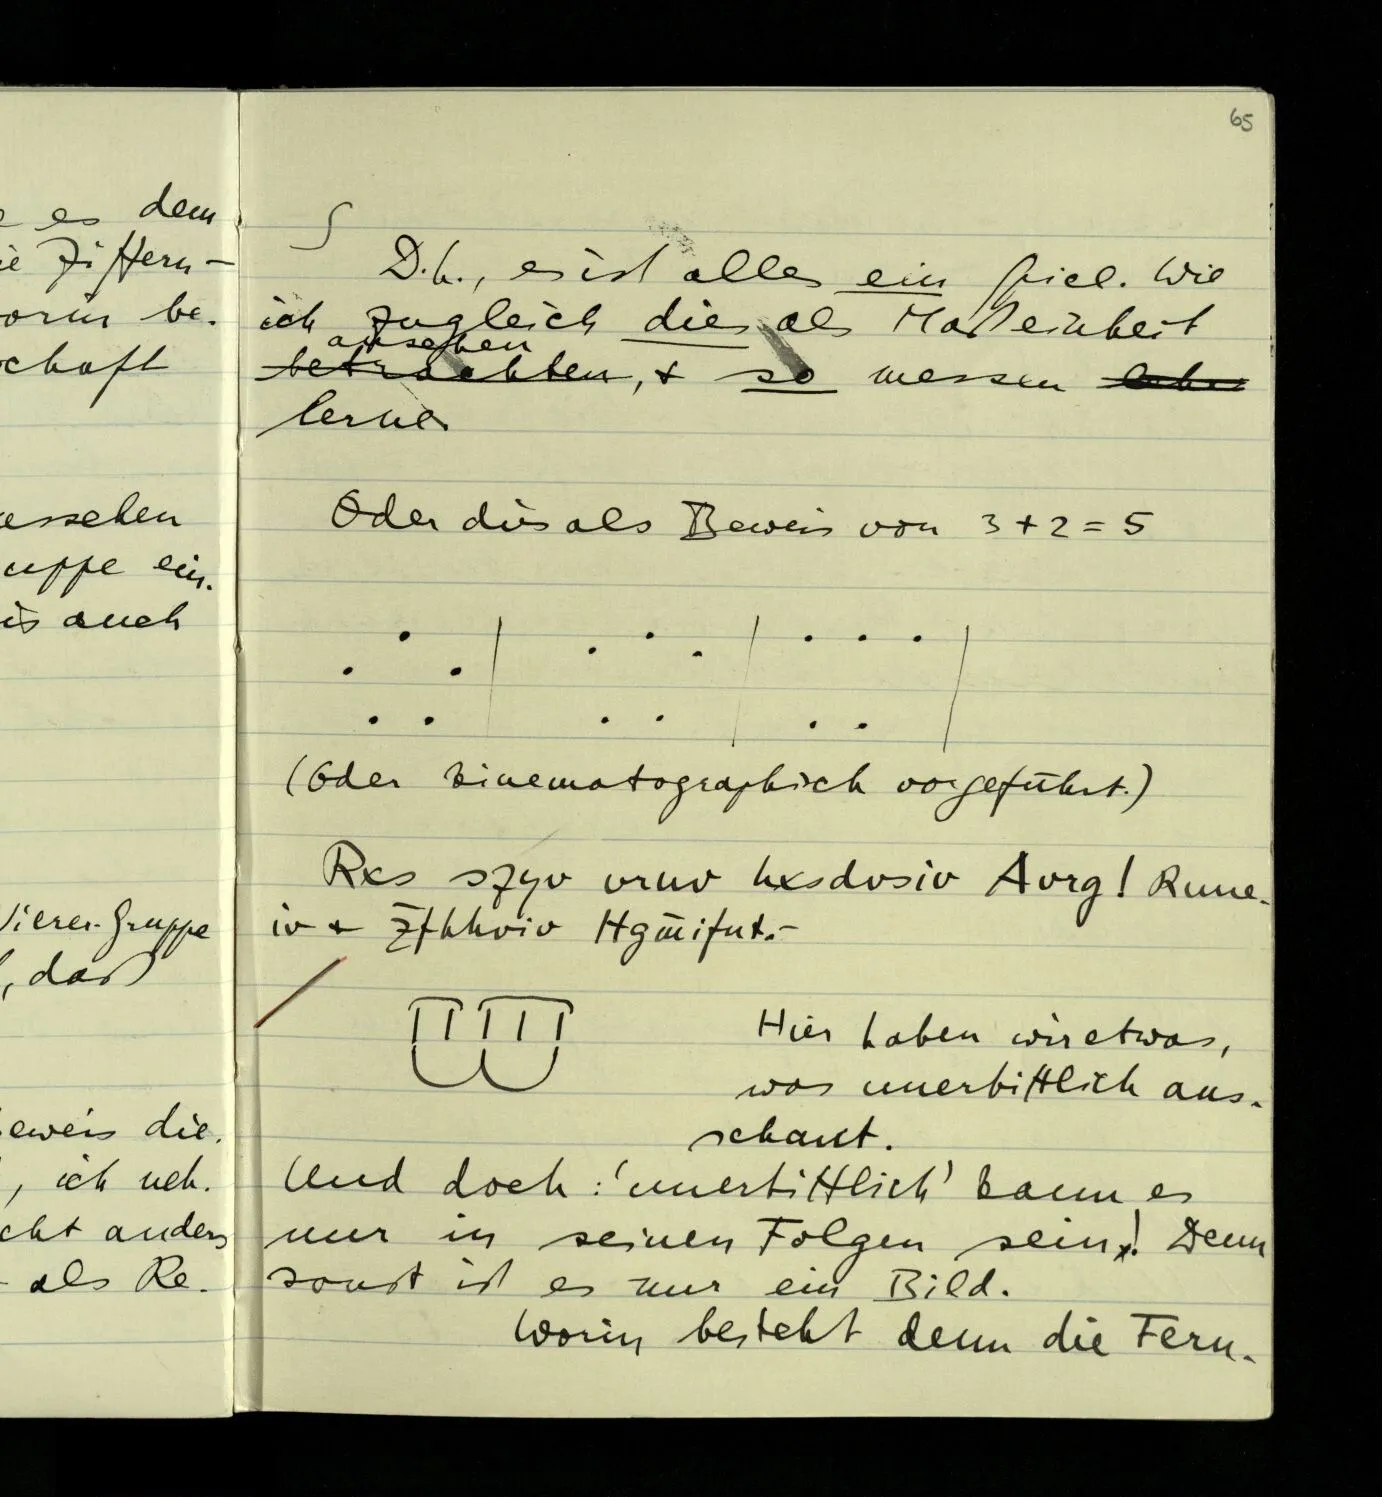 65
e es dem
ie Ziffern-
worin be-
schaft
aussehen
uppe ein.
is auch
Vierer-Gruppe
, daß
eweis die.
, ich neh-
cht anders
- als Re-
∫
D.h., es ist alles ein Spiel. Wie
ich zugleich dies als Maßeinheit
ansehen
betrachten, & so messen
lerne
Oder dies als Beweis von 3+2=5
(Oder kinematographich vorgeführt.)
Rxs szyv vruv hxsdvsiv Avrg! Rune-
iv & Hgmifut.-
Hier haben wir etwas,
was unerbittlich aus-
schaut.
Und doch: 'unerbittlich' kann es
nur in seinen Folgen sein! Denn
sonst ist es nur ein Bild.
Worin besteht denn die Fern-